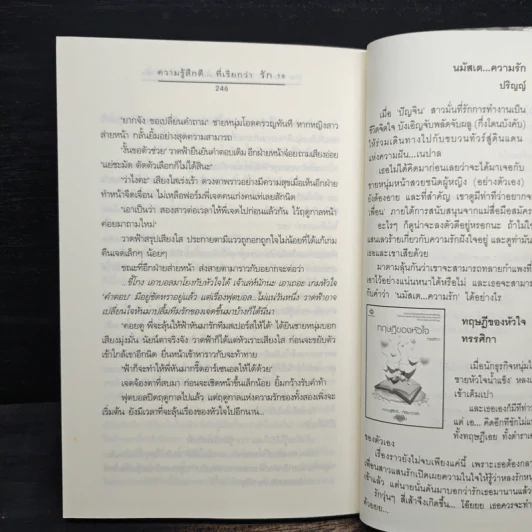 ความรู้สึกดี... ที่เรียกว่า รัก
246
'ยากจัง ขอเปลี่ยนคำถาม' ชายหนุ่มโอดครวญทันที หากหญิงสาว
ส่ายหน้า กลั้นยิ้มอย่างสุดความสามารถ
'งั้นขอตัวช่วย' วาดฟ้ายืนยันคำตอบเดิม อีกฝ่ายจ๋อยถามเสียงอ่อย
'แย่ชะมัด ตัดตัวเลือกก็ไม่ได้สินะ'
'ว่าไงคะ' เสียงใสเร่งเร้า ดวงตาพราวอย่างมีความสุขเมื่อเห็นอีกฝ่าย
ทำหน้าจืดเจื่อน ไม่เหลือฟอร์มพี่เจตคนเก่งคนเท่เลยสักนิด
'เอาเป็นว่า สองสาวต่อเวลาให้พี่เจตไปก่อนแล้วกัน ไว้ฤดูกาลหน้า
ค่อยมาถามใหม่'
วาดฟ้าสรุปเสียงใส ประกายตามีแววถูกอกถูกใจไม่น้อยที่ได้แก้เกม
คืนเจตเล็กๆ น้อยๆ
ขณะที่อีกฝ่ายส่ายหน้า ส่งสายตามาราวกับอยากจะต่อว่า
...ขี้โกง เอาบอลมาโยงกับหัวใจได้ เจ้าเล่ห์นักนะ เอาเถอะ เกมหัวใจ
'คำตอบ' มีอยู่ชัดหราอยู่แล้ว แต่เรื่องฟุตบอล...ไม่แน่วันหนึ่ง วาดฟ้าอาจ
เปลี่ยนใจหันมาปลื้มทีมรักของเจตขึ้นมาบ้างก็ได้นี่นา
'คอยดู พี่จะลุ้นให้ฟ้าหันมารักทีมสเปอร์สให้ได้' ได้ยินชายหนุ่มบอก
เสียงมุ่งมั่น นัยน์ตาจริงจัง วาดฟ้าก็ได้แต่หัวเราะเสียงใส ก่อนจะขยับตัว
เข้าใกล้เขาอีกนิด ยืนหน้าเขาราวกับจะท้าทาย
'ฟ้าก็จะทำให้พี่หันมากรี๊ดอาร์เซนอลให้ได้ด้วย'
เจตจ้องตาที่สบมา ก่อนจะเชิดหน้าขึ้นเล็กน้อย ยิ้มกว้างรับคำท้า
ฟุตบอลปิดฤดูกาลไปแล้ว แต่ฤดูกาลแห่งความรักของทั้งสองเพิ่งจะ
เริ่มต้น ยังมีเวลาที่จะลุ้นเรื่องของหัวใจไปอีกนาน...
นมัสเต...ความรัก
ปริญญ์
เมื่อ 'ปัญจิน' สาวมั่นที่รักการทำงานเป็น
ชีวิตจิตใจ บังเอิญจับพลัดจับผลู (กึ่งโดนบังคับ)
ให้ร่วมเดินทางไปกับขบวนทัวร์สู่ดินแดน
แห่งความฝัน...เนปาล
เธอไม่ได้คิดมาก่อนเลยว่าจะได้มาเจอกับ
ชายหนุ่มหน้าสวยชนิดผู้หญิง (อย่างตัวเอง)
ยังต้องอาย และที่สำคัญ เขาดูมีท่าทีว่าอยากจะ
เพื่อน' ภายใต้การสนับสนุนจากแม่สื่อมือสมัคร
อะไรๆ ก็ดูน่าจะลงตัวดีอยู่หรอกนะ ถ้าไม่ใช่
แสนเลวร้ายเกี่ยวกับความรักฝังใจอยู่ และดูท่ามัน
เธอและเขาเสียด้วย
มาตามลุ้นกันว่าเขาจะสามารถทลายกำแพงที่
สาวไว้อย่างแน่นหนาได้หรือไม่ และเธอจะสามาร
กับคำว่า 'นมัสเต...ความรัก' ได้อย่างไร
ทฤษฎีของหัวใจ
ทรรศิกา
ทฤษฎีของหัวใจ
เมื่อนักธุรกิจหนุ่มใ
ชายหัวใจน้ำแข็ง' หลง
เข้าเต็มเปา
และเธอเองก็มีทีท่า
แต่ เอ... คิดอีกทีชักไม่แน่
ทั้งทฤษฎีเอย ทั้งตำราเ
ของตัวเอง
เรื่องราวยังไม่จบเพียงแค่นี้ เพราะเธอต้องกลา
เพื่อนสาวแสนรักเปิดเผยความในใจให้รู้ว่าหลงรักหน
เข้าแล้ว แต่นายนั่นดันมาบอกว่ารักเธอมานานแล้ว
รักวุ่นๆ สี่เส้าจึงเกิดขึ้น... โอ๊ยยย เธอควรจะทำ
ด้วยยย...